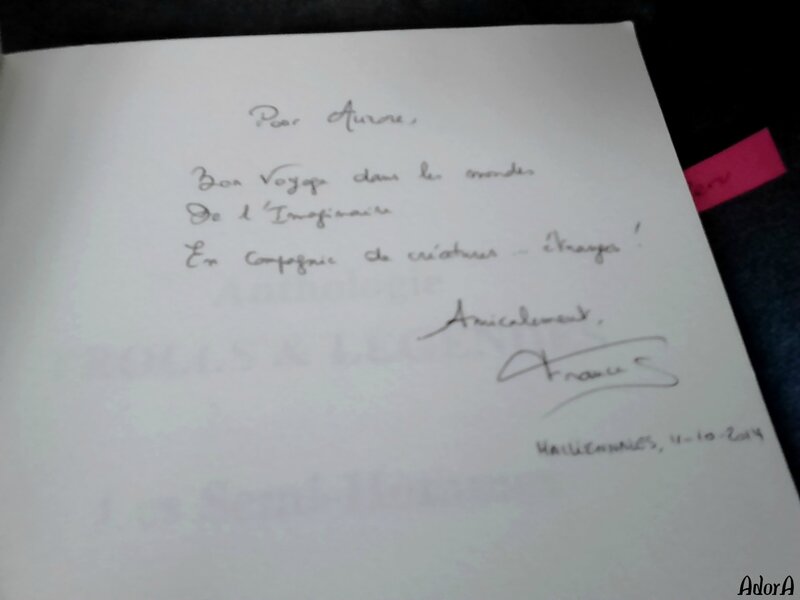 Pour Aurore,
Bon Voyage dans les mondes
De l'Imaginaire
En Compagnie de créatures... étranges !
Amicalement,
Francis
HALLENNES, 11-10-2014
Anthologie
TROLLS & LEGENDES
Les Semi-Hommes
AdorA